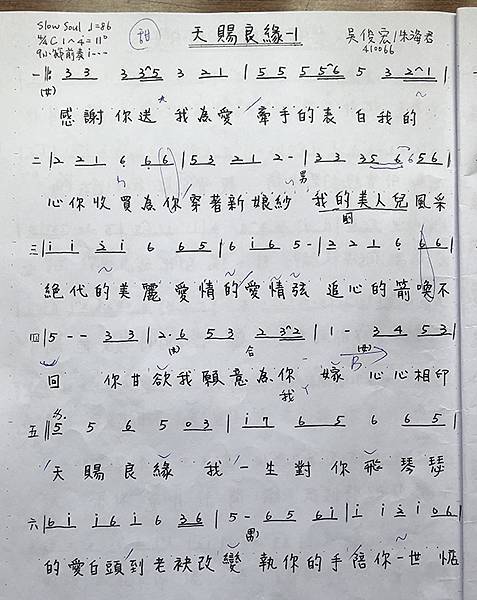 Slow Soul ♩=86
4/4 C 1～4=11°
9小節前奏 i---
甜
天賜良緣-1
吳俊宏/朱海君
410066
一 || 3 3 3 3^5 3 2 1 | 5 5 5 5^6 5 3 2^1 |
(女)
感謝你送 我為愛 牽手的表 白我的
二 | 2 2 1 6 6 6 | 5 3 2 1 2 - | 3 3 3 5 6 6 5 6 |
男
心你收買為你穿著新娘紗 我的美人兒風采
三 | i i 3 i 6 6 5 | 6 i 6 5 - | 2 2 1 6 6 6 |
絕代的美麗愛情的愛情弦 追心的箭喚不
四 | 5 - - 3 3 | 2· 6 5 3 2 3^2 | 1 - 3 4 5 3 |
(女) 合 (女)
回 你甘欲我願意為你 嫁 心心相印
我 B
五 || 5 5 6 5 0 3 | i 7 6 5 6 6 5 |
天賜良緣 我 一生對你飛琴瑟
六 | 6 i i 6 i 6 3 6 | 5 - 6 5 6 i | i i 3 i 0 6 |
(男)
的愛白頭到老袂改變 執你的手陪你一世 惦